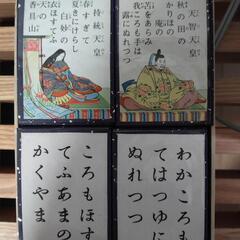 天智天皇
秋の田の
かりほの
庵の
苫をあらみ
ころも手は
露にぬれつつ
持統天皇
春すぎて
夏きにけらし
白妙の
衣ほすてふ
天の
香具山
わかころも
てはつゆに
ぬれつつ
ころもほす
てふあまの
かくやま